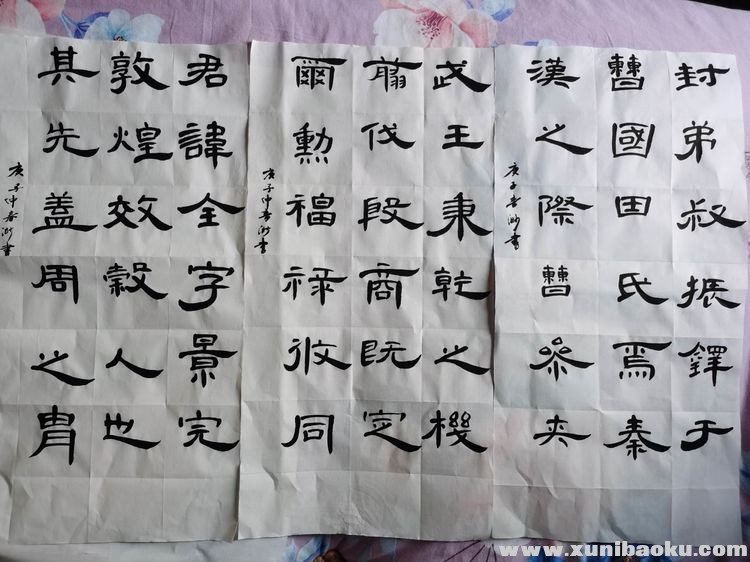 君諱全字景完
敦煌效穀人也
其先蓋周之胄
庚子仲春 書
武王秉乾之機
翦伐殷商既定
爾勳福祿攸同
庚子仲春 書
封弟叔振鐸于
曹國因氏焉秦
漢之際曹參夾
庚子春 書
www.xunibaoku.com